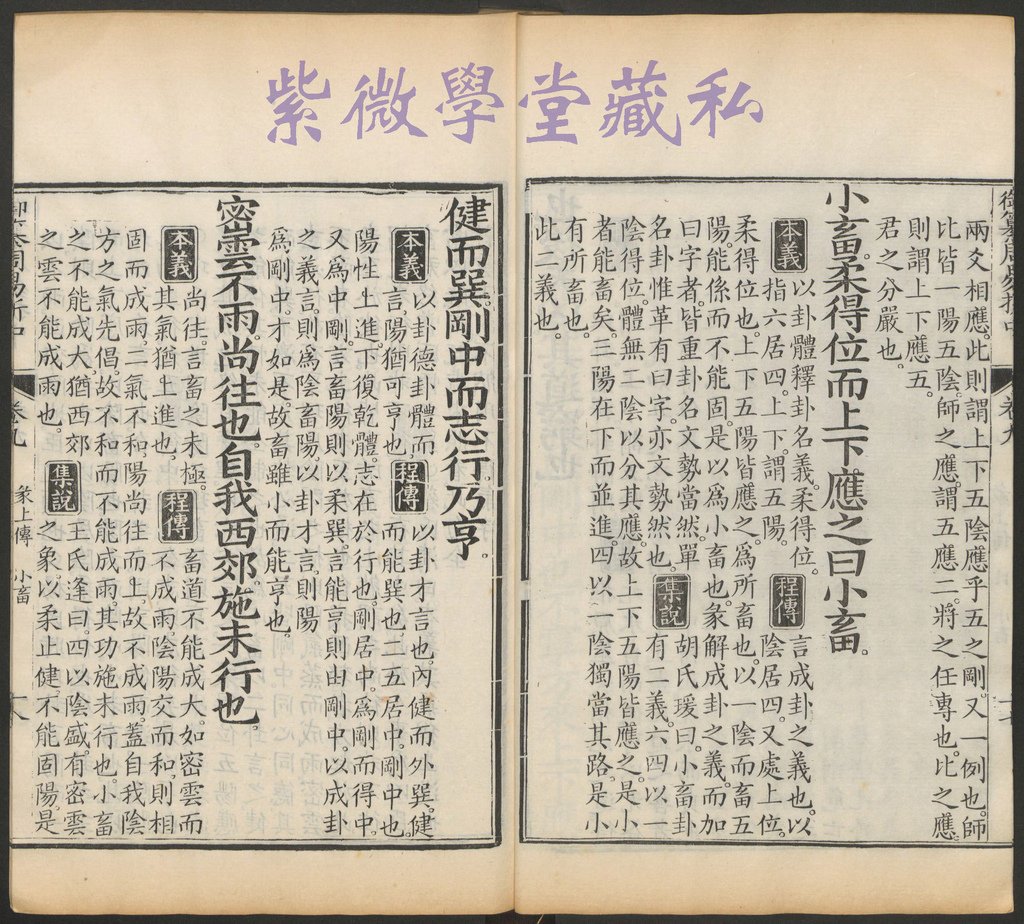 紫微學堂藏私
兩爻相應。此則謂上下五陰應乎五之剛。又一例也。師
比皆一陽五陰。師之應。謂五應二。將之任專也。比之應。
則謂上下應五。
君之分嚴也。
小畜。柔得位而上下應之曰小畜。
本義 以卦體釋卦名義。柔得位。 程傳 言成卦之義也。以
指六居四。上下。謂五陽。 陰居四。又處上位。
柔得位也。上下五陽皆應之。爲所畜也。以一陰而畜五
陽。能係而不能固。是以爲小畜也。彖解成卦之義。而加
曰字者。皆重卦名。文勢當然。單 集說 胡氏瑗曰。小畜卦
名卦惟革有曰字。亦文勢然也。 有二義。六四以一
陰得位。體無二陰以分其應。故上下五陽皆應之。是小
者能畜矣。三陽在下而並進。四以一陰獨當其路。是小
有所畜也。
此二義也。
健而巽。剛中而志行。乃亨。
本義 以卦德卦體而 程傳 以卦才言也。內健而外巽。健
言。陽猶可亨也。 而能巽也。二五居中。剛中也。
陽性上進。下復乾體。志在於行也。剛居中。爲剛而得中。
又爲中剛。言畜陽則以柔巽。言能亨則由剛中。以成卦
之義言。則爲陰畜陽。以卦才言。則陽
爲剛中。才如是。故畜雖小而能亨也。
密雲不雨。尚往也。自我西郊。施未行也
本義 尚往。言畜之未極。 程傳 畜道不能成大。如密雲而
其氣猶上進也。 不成雨。陰陽交而和。則相
固而成雨。二氣不和。陽尚往而上。故不成雨。蓋自我陰
方之氣先倡。故不和而不能成雨。其功施未行也。小畜
之不能成大。猶西郊 集說 王氏逢曰。四以陰盛。有密雲
之雲不能成雨也。 之象。以柔止健。不能固陽。是
卷九
彖上傳
小畜